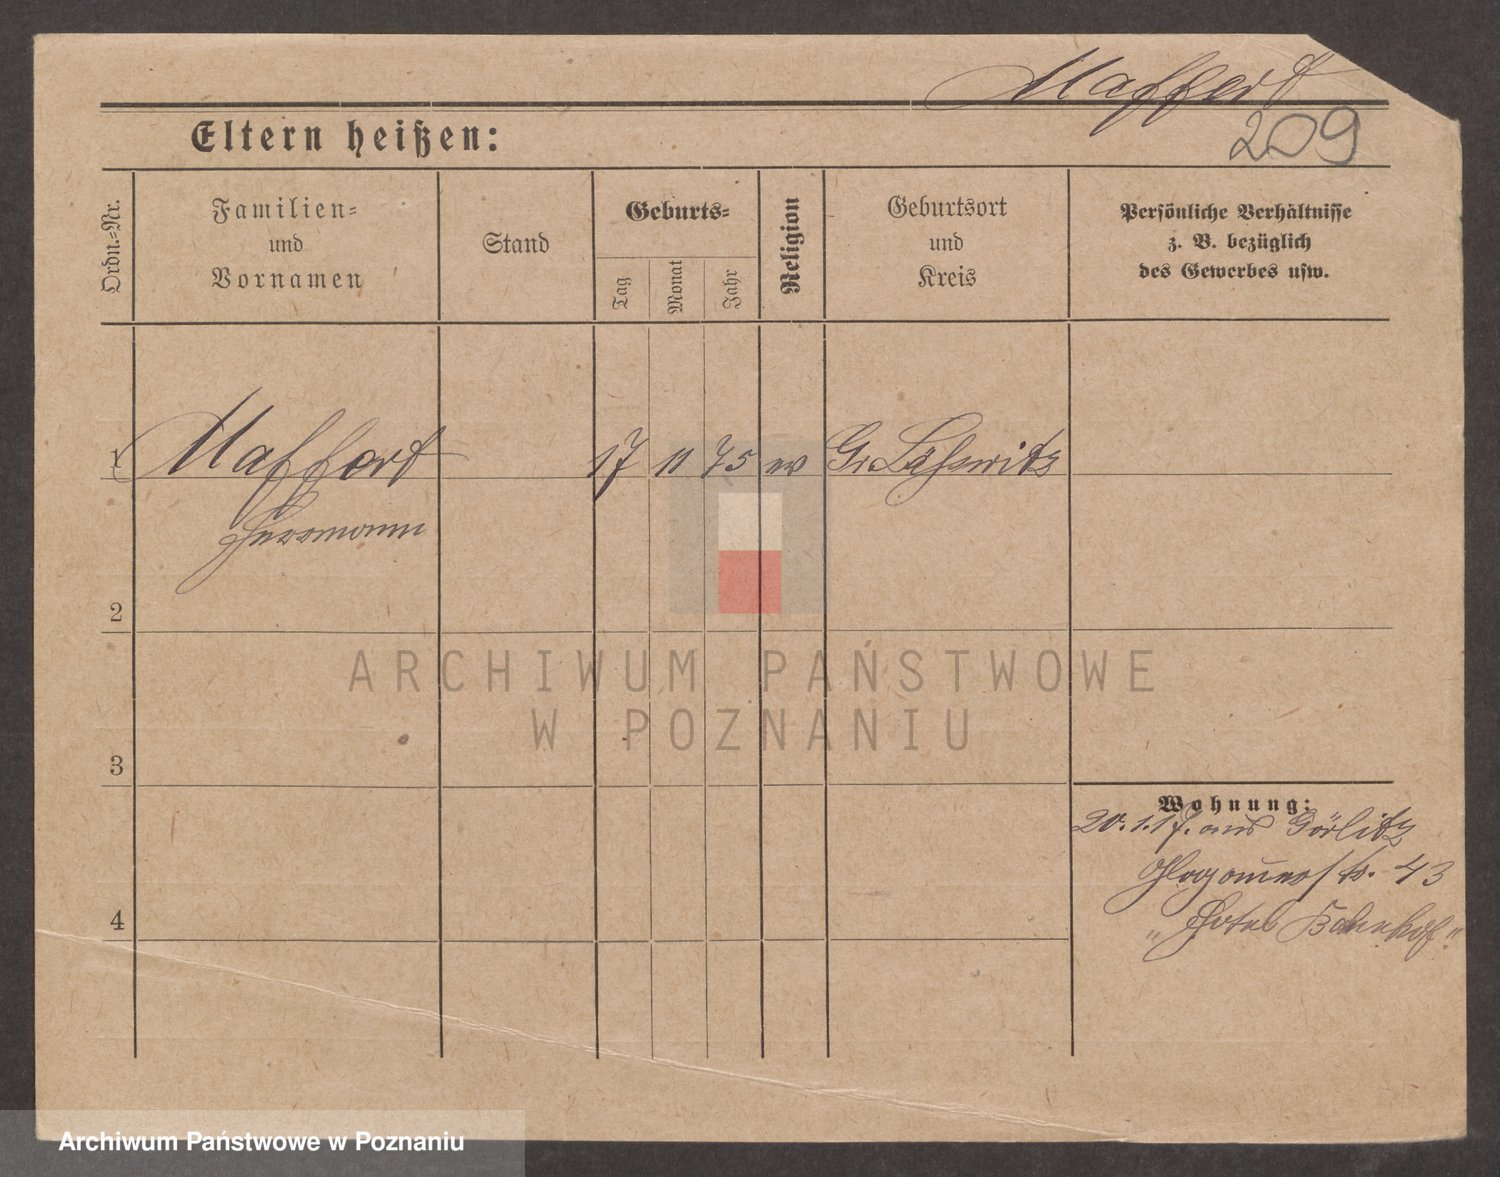 Maffert
209
Eltern heißen:
Ordn.-Nr.
Familien-
und
Vornamen
Stand
Geburts-
Tag
Monat
Jahr
Religion
Geburtsort
und
Kreis
Persönliche Verhältnisse
z. B. bezüglich
des Gewerbes usw.
1 Maffert 17 11 75 ev Gr.
Hermann
2
3
4
Wohnung:
20.1.17. aus Görlitz
Glogauerstr. 43
„Hotel Bahnhof"
ARCHIWUM PAŃSTWOWE
W POZNANIU
Archiwum Państwowe w Poznaniu